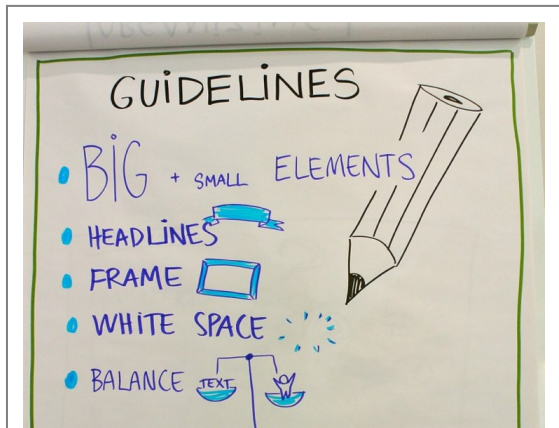 GUIDELINES
BIG + SMALL ELEMENTS
HEADLINES
FRAME
WHITE SPACE
BALANCE TEXT